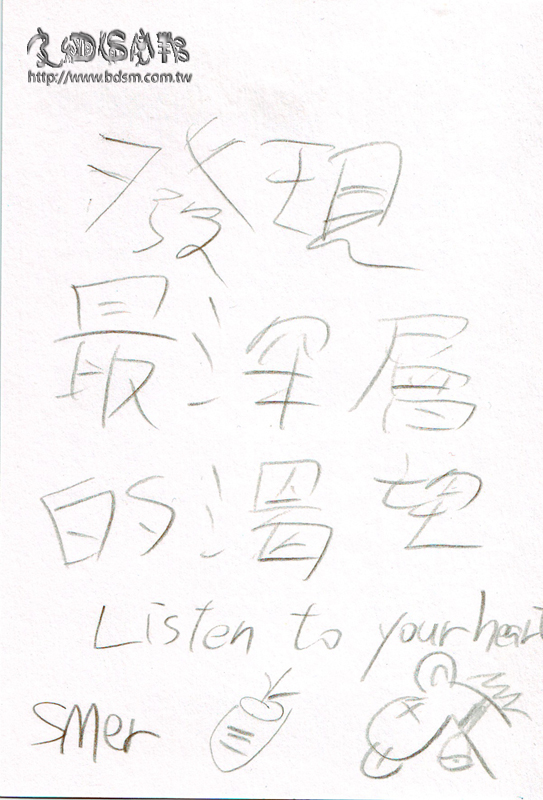 BDSM
http://www.bdsm.com.tw
發現
最深層
的渴望
Listen to your heart
SMer